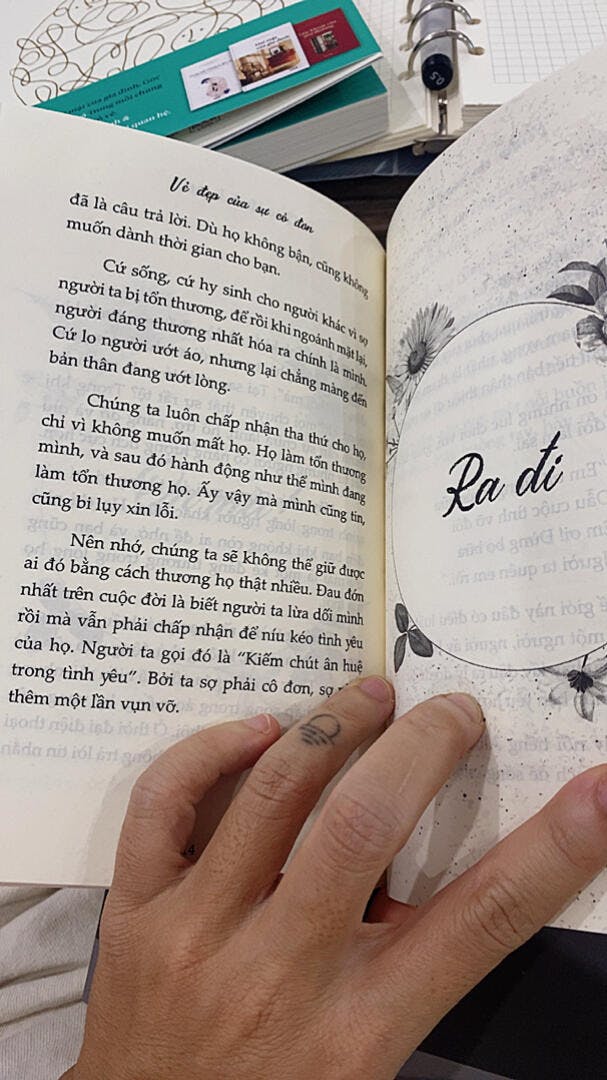 mại của gia đình. Góc
trong mỗi chúng
quan hệ.
0.5
Vẻ đẹp của sự cô đơn
đã là câu trả lời. Dù họ không bận, cũng không
muốn dành thời gian cho bạn.
Cứ sống, cứ hy sinh cho người khác vì sợ
người ta bị tổn thương, để rồi khi ngoảnh mặt lại,
người đáng thương nhất hóa ra chính là mình.
Cứ lo người ướt áo, nhưng lại chẳng màng đến
bản thân đang ướt lòng.
Chúng ta luôn chấp nhận tha thứ cho họ,
chỉ vì không muốn mất họ. Họ làm tổn thương
mình, và sau đó hành động như thể mình đang
làm tổn thương họ. Ấy vậy mà mình cũng tin,
cũng bi lụy xin lỗi.
Nên nhớ, chúng ta sẽ không thể giữ được
ai đó bằng cách thương họ thật nhiều. Đau đớn
nhất trên cuộc đời là biết người ta lừa dối mình
rồi mà vẫn phải chấp nhận để níu kéo tình yêu
của họ. Người ta gọi đó là “Kiếm chút ân huệ
trong tình yêu”. Bởi ta sợ phải cô đơn, sợ
thêm một lần vụn vỡ.
Ra đi